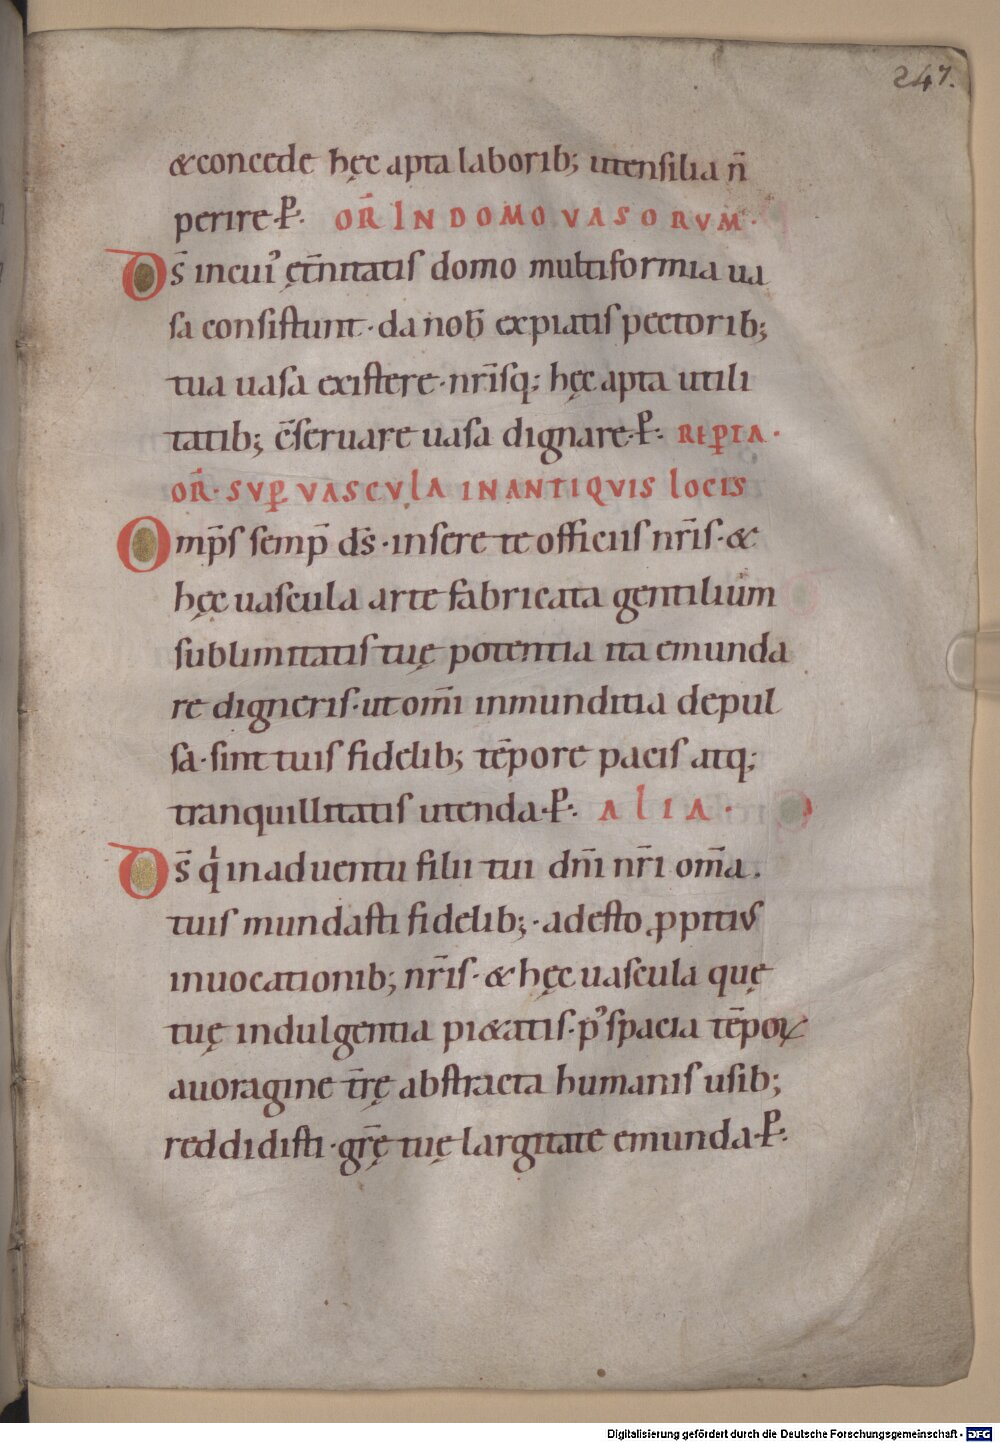 247.
& concede hęc apta laborib; utensilia n̄
perire·P̄·. OR̄ IN DOMO VASORVM·
Ds̄ incui᾽ ęt̄nitatis domo multiformia ua
sa consistunt·da nob̄ expiatis pectorib;
tua uasa existere·nr̄isq; hęc apta utili
tatib; c̄seruare uasa dignare·P̄·. REPTA·
OR̄·SVP̱ VASCVLA IN ANTIQVIS LOCIS
Omp̄s semp̄ ds̄·insere te officiis nr̄is·&
hęc uascula arte fabricata gentilium
sublimitatis tuę potentia ita emunda
re digneris·ut om̄i inmunditia depul
sa·sint tuis fidelib; tēpore pacis atq;
tranquillitatis utenda·P̄·. ALIA·
Ds̄ qͥ in aduentu filii tui dn̄i nr̄i om̄a.
tuis mundasti fidelib;·adesto ꝓpitius
inuocationib; nr̄is·& hęc uascula quę
tuę indulgentia pi&atis·p᾽ spacia tēpoꝝ
auoragine t̄rę abstracta humanis usib;
reddidisti·gr̄ę tuę largitate emunda·P̄·.
Digitalisierung gefördert durch die Deutsche Forschungsgemeinschaft - DFG